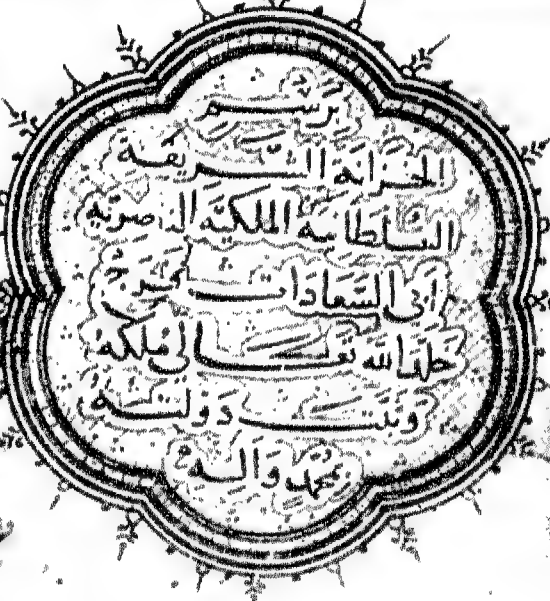 برسم
الخزانة الشريفة
السلطانية الملكية الناصرية
أبي السعادات محمد بن ج
خلد الله تعالى ملكه
وثبت دولته
بمحمد وآله